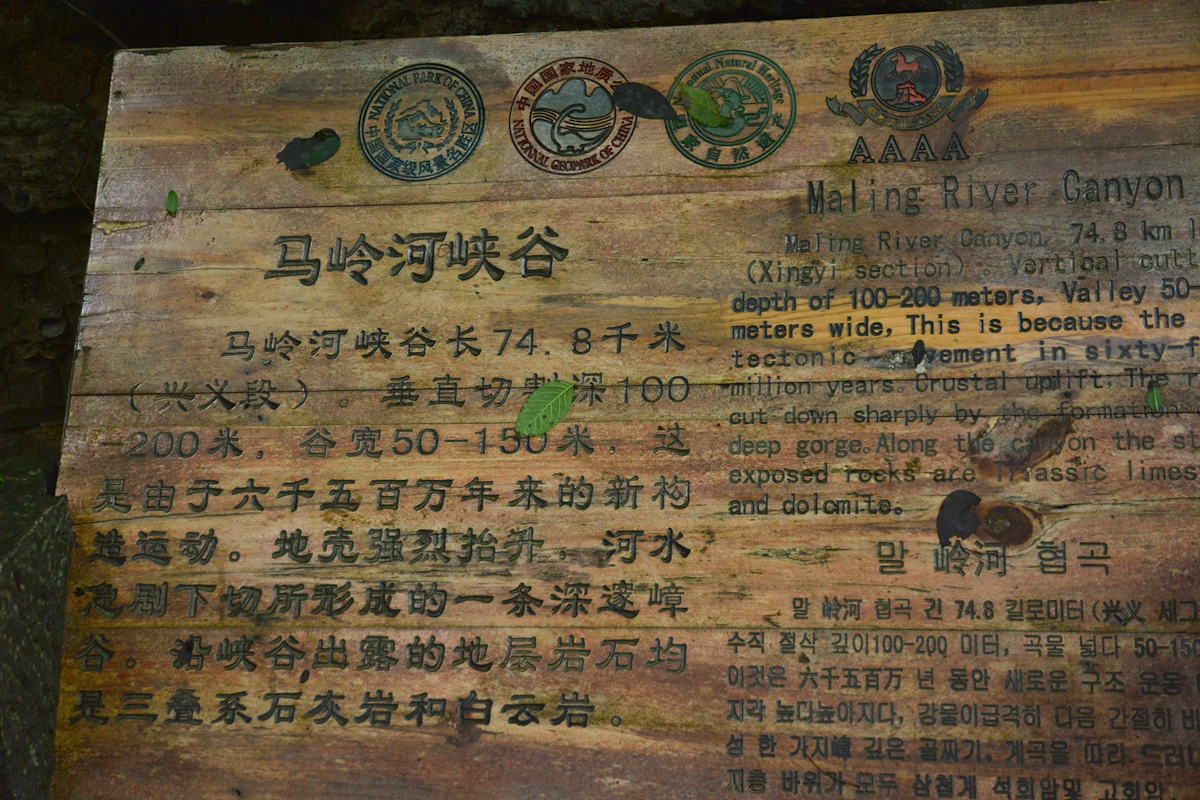 NATIONAL PARK OF CHINA
中国国家级风景名胜区
中国国家地质公
NATIONAL GEOPARK OF CHINA
Natural Heritage
国家自然遗产
AAAA
马岭河峡谷
马岭河峡谷长74.8千米
（兴义段）。垂直切割深100
-200米，谷宽50-150米，这
是由于六千五百万年来的新构
造运动。地壳强烈抬升，河水
急剧下切所形成的一条深邃嶂
谷。沿峡谷出露的地层岩石均
是三叠系石灰岩和白云岩。
Maling River Canyon
Maling River Canyon, 74.8 km l
(Xingyi section)。Vertical cutt
depth of 100-200 meters, Valley 50-
meters wide, This is because the
tectonic vement in sixty-f
million years. Crustal uplift, The r
cut down sharply by the formation
deep gorge. Along the canyon the st
exposed rocks are Triassic limes
and dolomite。
말 岭河 협곡
말 岭河 협곡 긴 74.8 킬로미터(兴义 세그
수직 절삭 깊이100-200 미터, 곡물 넓다 50-150
이것은 六千五百万 년 동안 새로운 구조 운동
지각 높다높아지다, 강물이급격히 다음 간절히 바
성 한 가지嶂 깊은 골짜기. 계곡을 따라 드러
지층 바위가 모두 삼첩계 석회암및 고회암